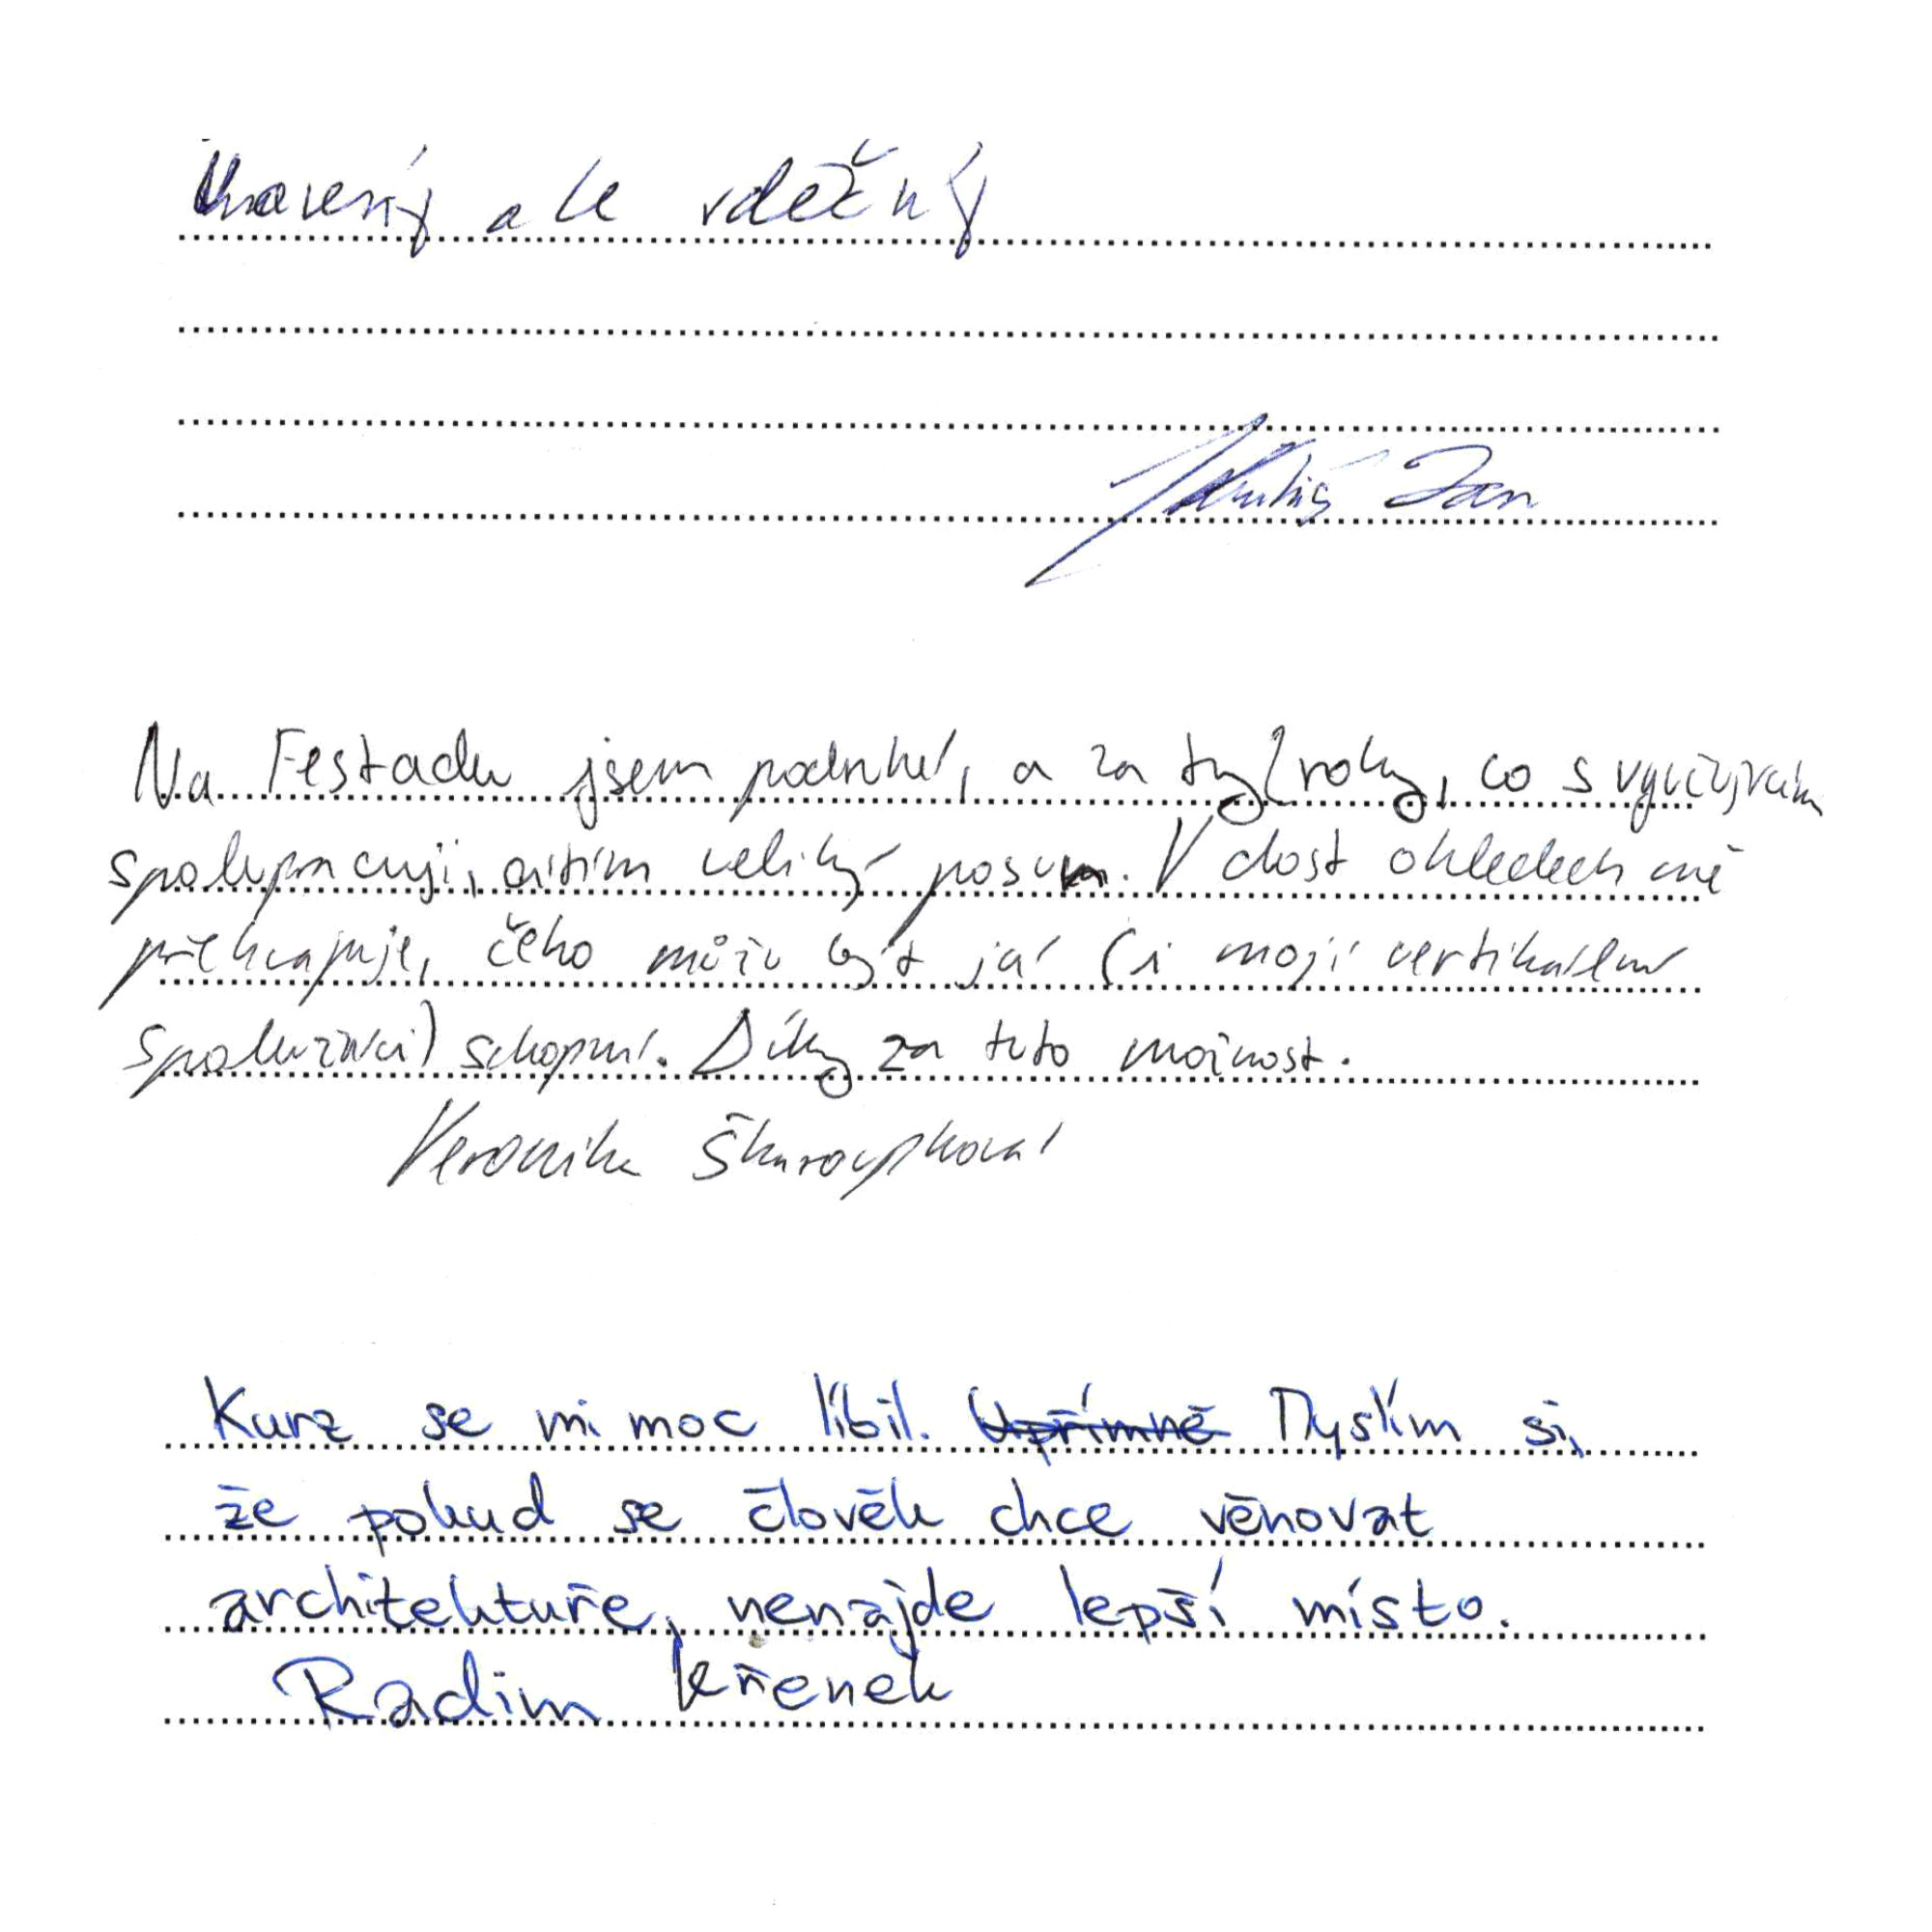 Unavený ale vděčný
Jan
Na Festadu jsem podruhé, a za ty 2 roky, co s vyučujícím
spolupracuji, cítím veliký posun. V dost ohledech mě
překvapuje, čeho můžu být já (i moji vertikální
spolužáci) schopní. Díky za tuto možnost.
Veronika
Kurz se mi moc líbil. Upřímně Myslím si,
že pokud se člověk chce věnovat
architektuře, nenajde lepší místo.
Radim Křenek